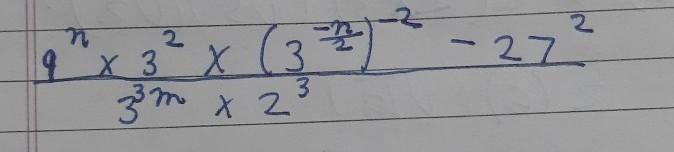 9^n × 3^2 × (3^{-n/2})^{-2} - 27^2
3^{3m} × 2^3